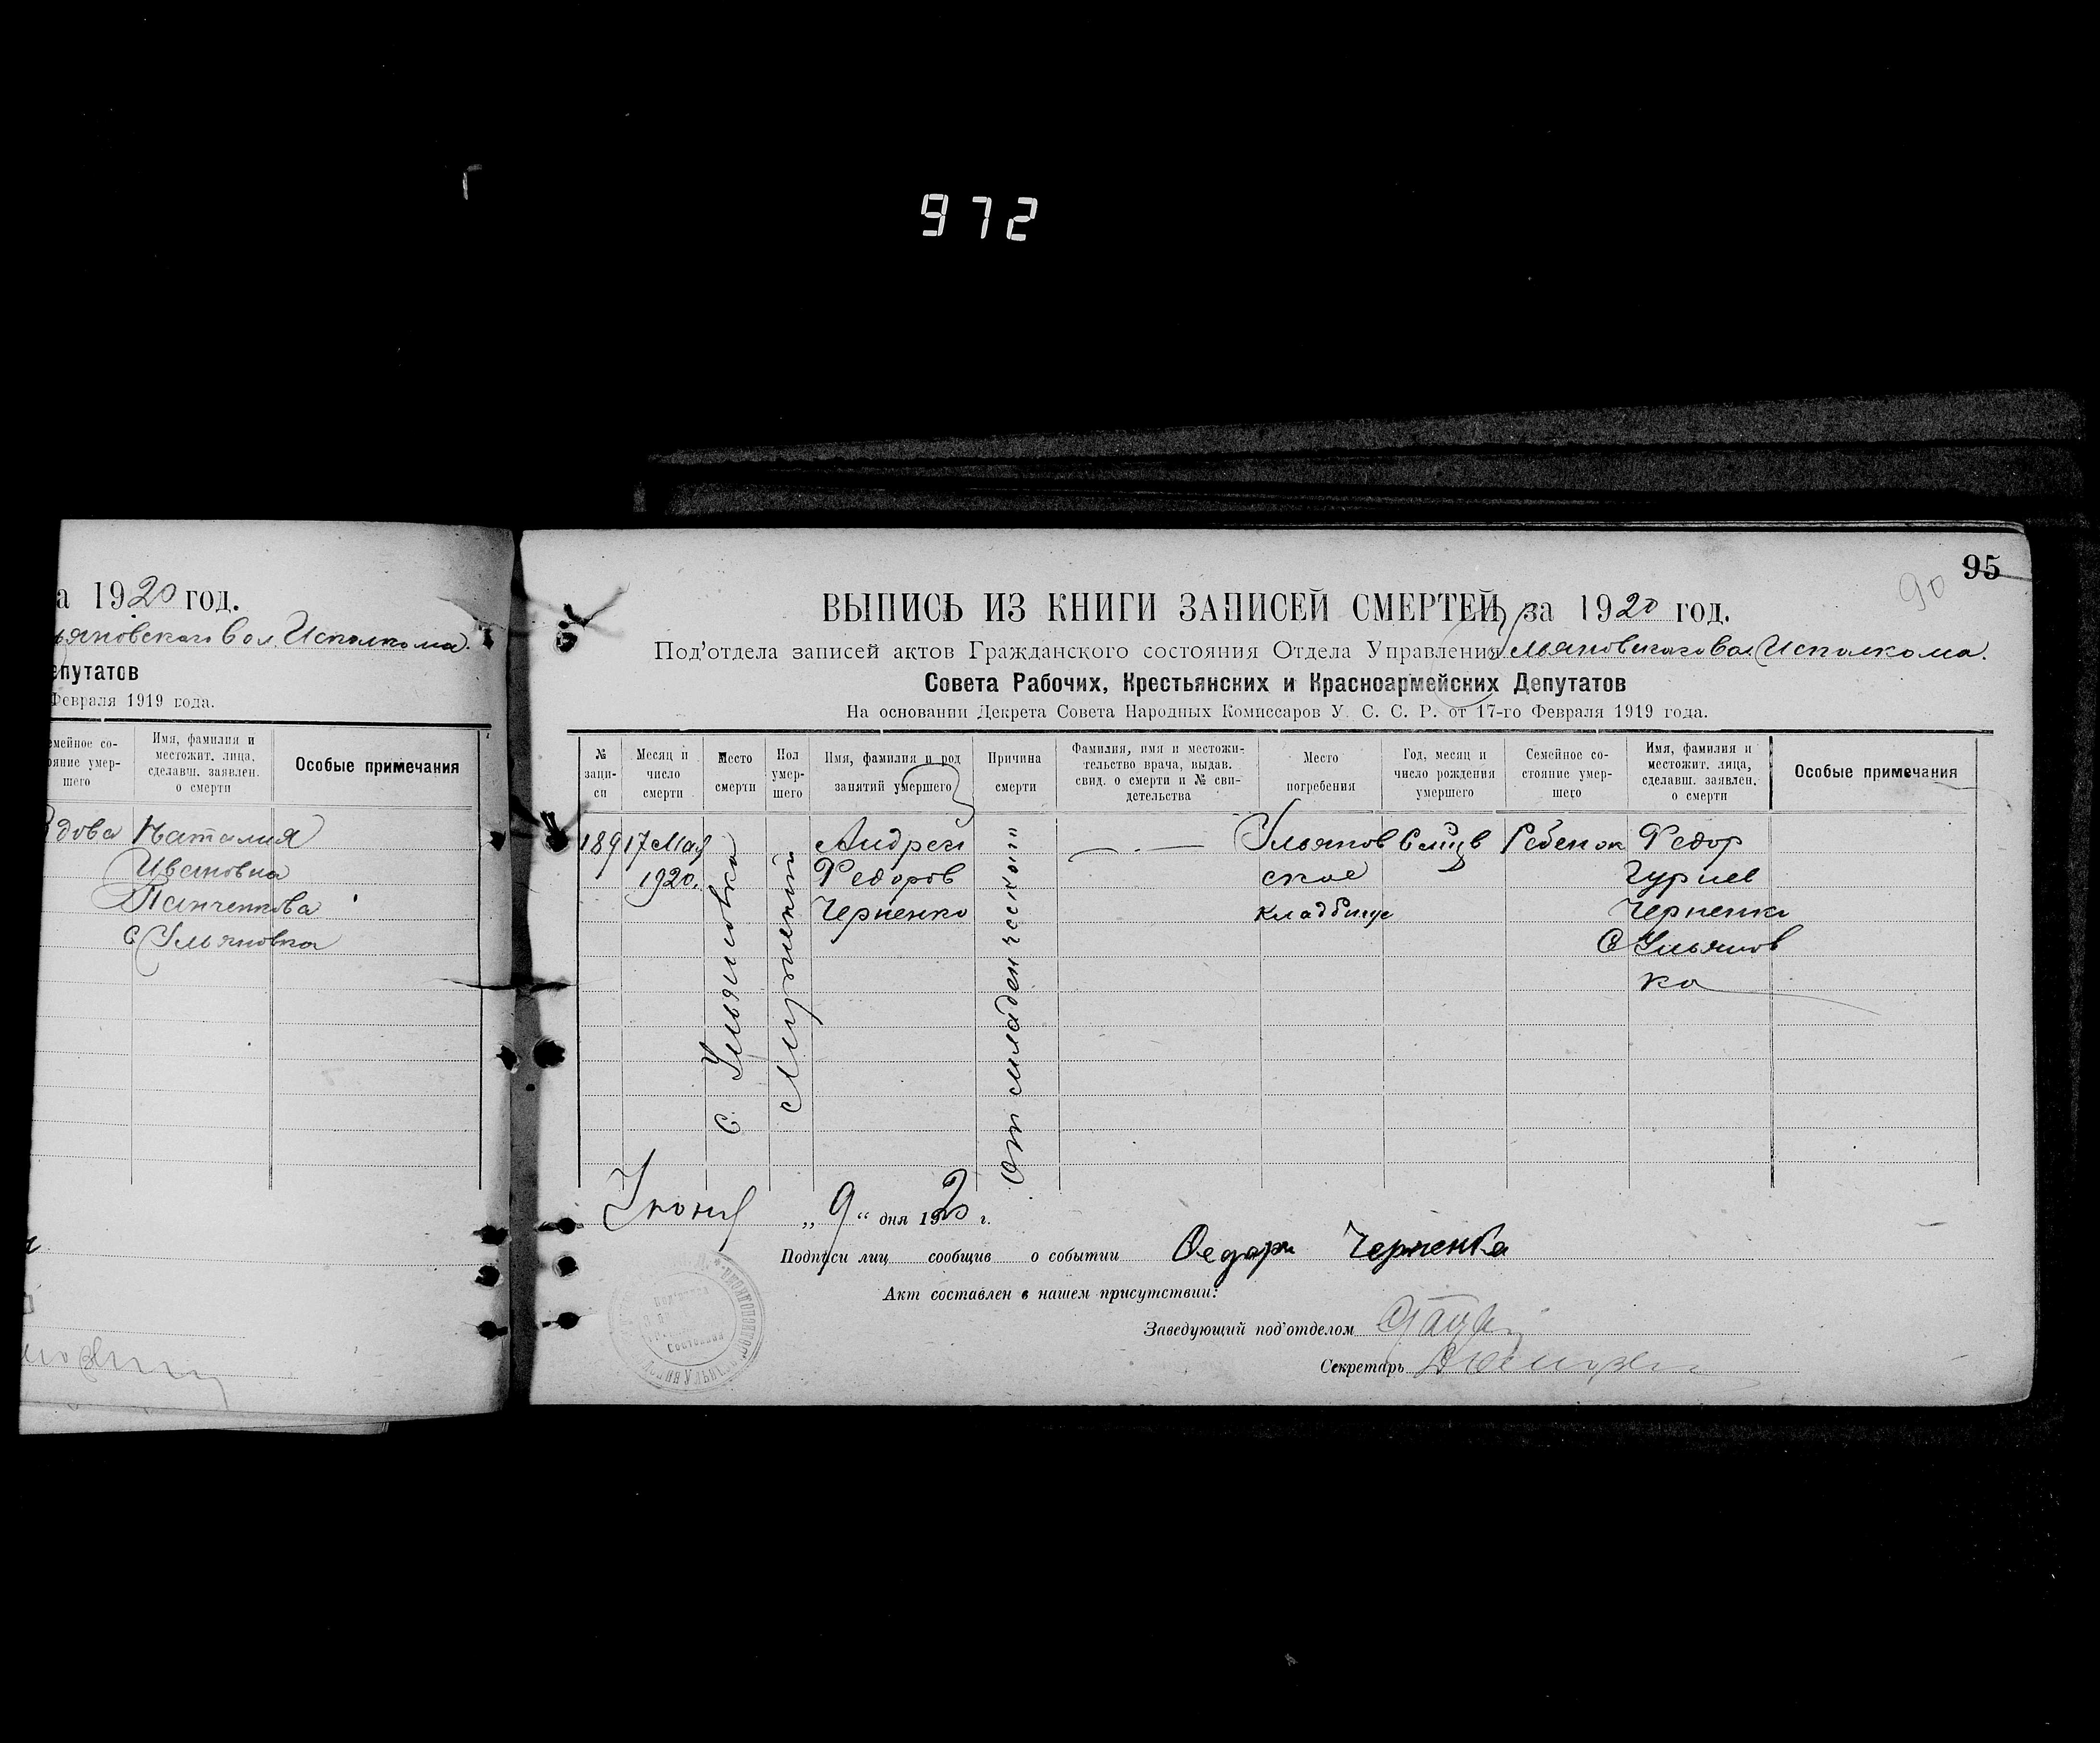 972
а 1920 год.
ьяновскаго Вол. Исполкома.
епутатов
Февраля 1919 года.
емейное со-
ояние умер-
шего
Имя, фамилия и
местожит. лица,
сделавш. заявлен.
о смерти
Особые примечания
дова Наталия
Ивановна
Панченкова
с Ульяновка
95
90
ВЫПИСЬ ИЗ КНИГИ ЗАПИСЕЙ СМЕРТЕЙ за 1920 год.
Под'отдела записей актов Гражданского состояния Отдела Управления Ульяновскаго Вол Исполкома.
Совета Рабочих, Крестьянских и Красноармейских Депутатов
На основании Декрета Совета Народных Комиссаров У. С. С. Р. от 17-го Февраля 1919 года.
№
запи-
си
Месяц и
число
смерти
Место
смерти
Пол
умер-
шего
Имя, фамилия и род
занятий умершего
Причина
смерти
Фамилия, имя и местожи-
тельство врача, выдав.
свид. о смерти и № сви-
детельства
Место
погребения
Год, месяц и
число рождения
умершего
Семейное со-
стояние умер-
шего
Имя, фамилия и
местожит. лица,
сделавш. заявлен.
о смерти
Особые примечания
189
17 Мая
1920.
с. Ульяновка
Мужеский
Андрей
Федоров
Черненко
От младенческой
Ульянов
ское
кладбище
Ребенок
Федор
Гуриев
Черненко
С Ульянов
ка
Июня „ 9 “ дня 1920 г.
Подписи лиц сообщив о событии Федори Черненко
Акт составлен в нашем присутствии:
Заведующий под'отделом
Секретарь
Под'отдел
Состояния